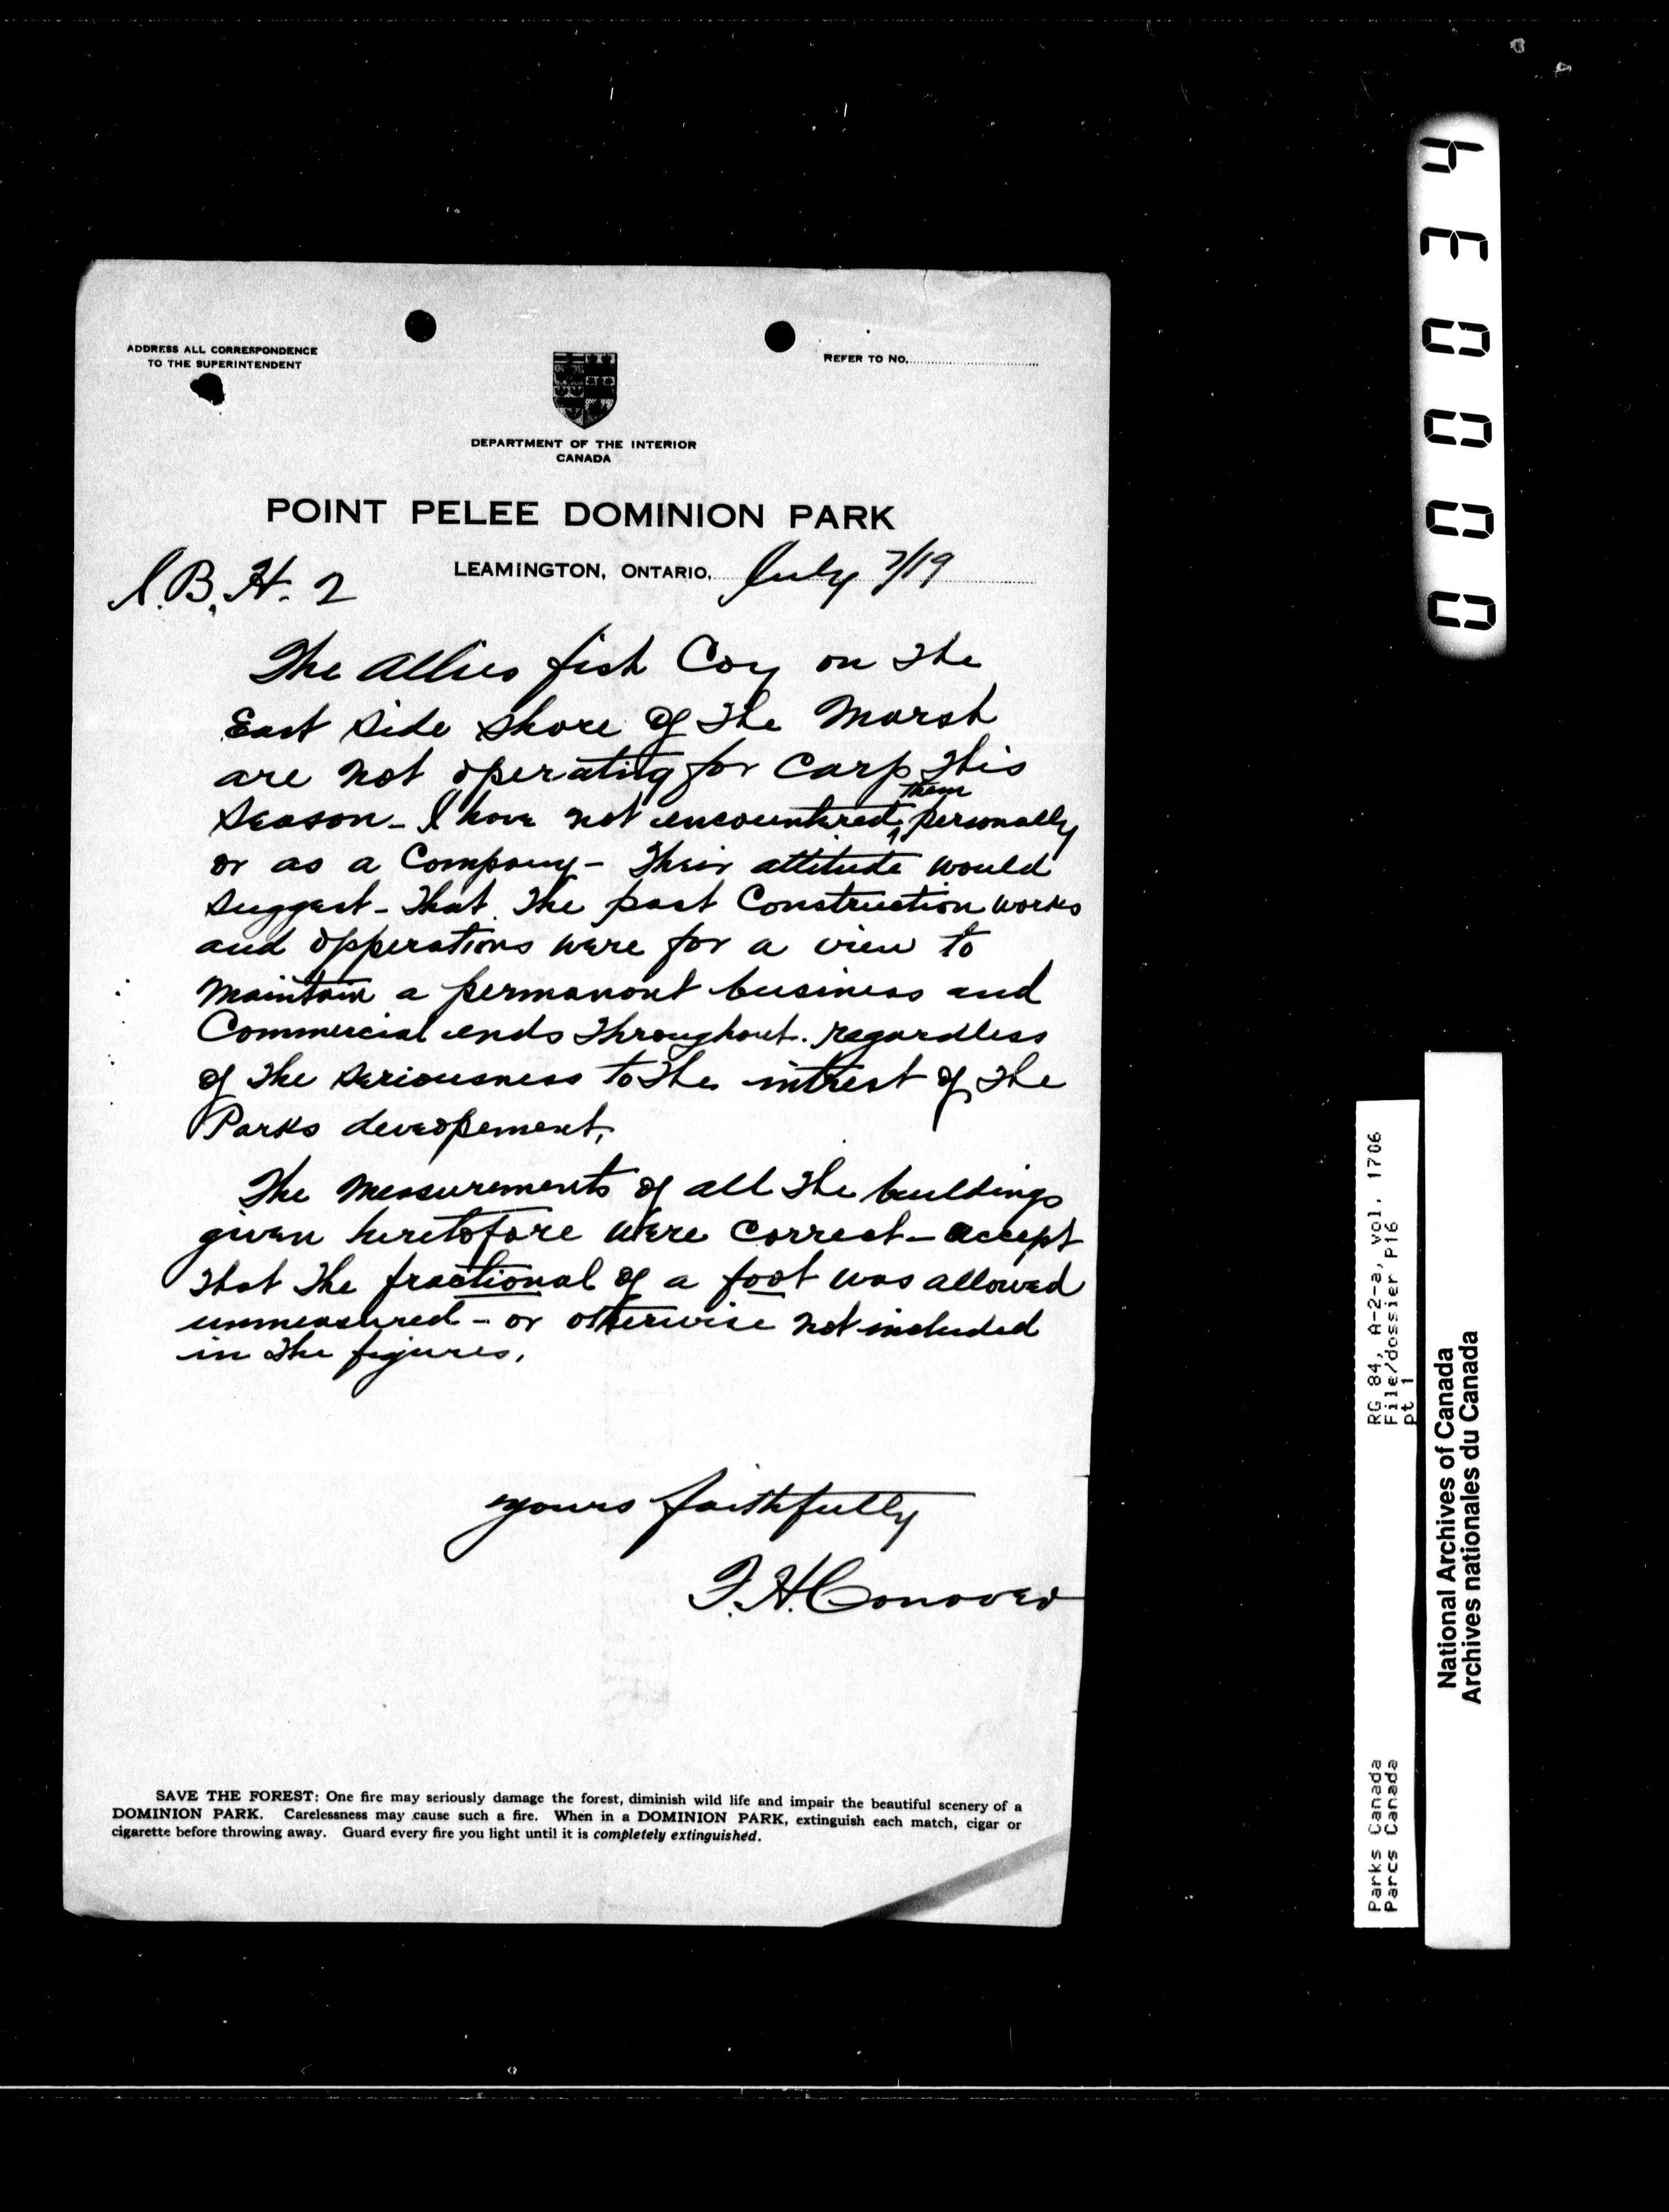 ADDRESS ALL CORRESPONDENCE
TO THE SUPERINTENDENT
REFER TO NO.
DEPARTMENT OF THE INTERIOR
CANADA
POINT PELEE DOMINION PARK
LEAMINGTON, ONTARIO, July 7/19
J.B.H. 2
The Allies fish Coy on The
East Side Shore of The Marsh
are not operating for Carp This
Season - I have not encountered them personally
or as a Company - Their attitude would
Suggest - That The past Construction works
and opperations were for a view to
Maintain a permanont business and
Commercial ends Throughout. regardless
of The Seriousness to The intrest of The
Parks deveopement.
The Measurements of all The buildings
given heretofore were correct - accept
That The fractional of a foot was allowed
unmeasured - or otherwise not included
in The figures.
yours faithfully
F.H. Conover
SAVE THE FOREST: One fire may seriously damage the forest, diminish wild life and impair the beautiful scenery of a
DOMINION PARK. Carelessness may cause such a fire. When in a DOMINION PARK, extinguish each match, cigar or
cigarette before throwing away. Guard every fire you light until it is completely extinguished.
000034
Parks Canada RG 84, A-2-a, vol. 1706
Parcs Canada File/dossier P16
pt 1
National Archives of Canada
Archives nationales du Canada